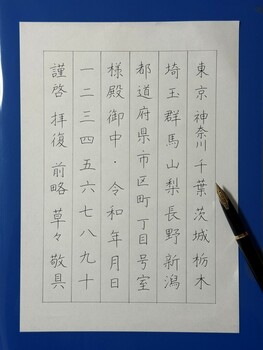 東京神奈川千葉茨城栃木
埼玉群馬山梨長野新潟
都道府県市区町丁目号室
様殿御中・令和年月日
一二三四五六七八九十
謹啓 拝復 前略 草々 敬具